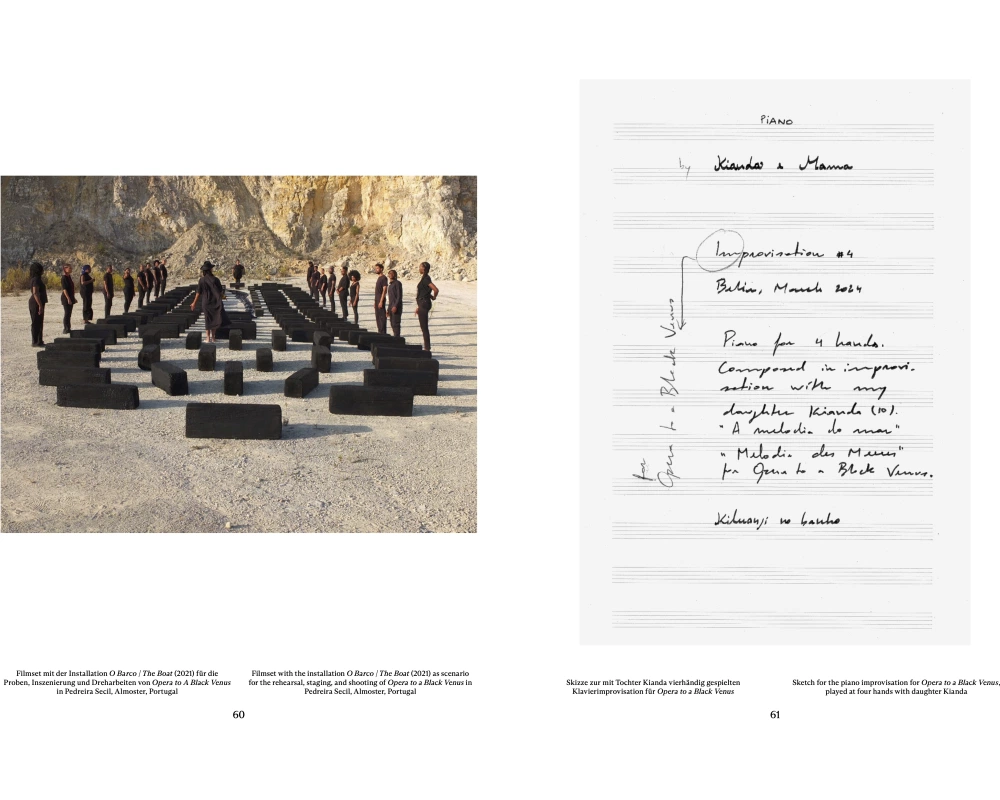 Filmset mit der Installation O Barco / The Boat (2021) für die
Proben, Inszenierung und Dreharbeiten von Opera to A Black Venus
in Pedreira Secil, Almoster, Portugal
Filmset with the installation O Barco / The Boat (2021) as scenario
for the rehearsal, staging, and shooting of Opera to a Black Venus in
Pedreira Secil, Almoster, Portugal
60
PIANO
by Kianda & Mama
Improvisation #4
Berlin, March 2024
Piano for 4 hands.
Composed in improvi-
sation with my
daughter Kianda (10).
"A melodia do mar"
"Melodie des Meeres"
for Opera to a Black Venus.
for
Opera to a Black Venus
Kiluanji no banho
Skizze zur mit Tochter Kianda vierhändig gespielten
Klavierimprovisation für Opera to a Black Venus
Sketch for the piano improvisation for Opera to a Black Venus,
played at four hands with daughter Kianda
61